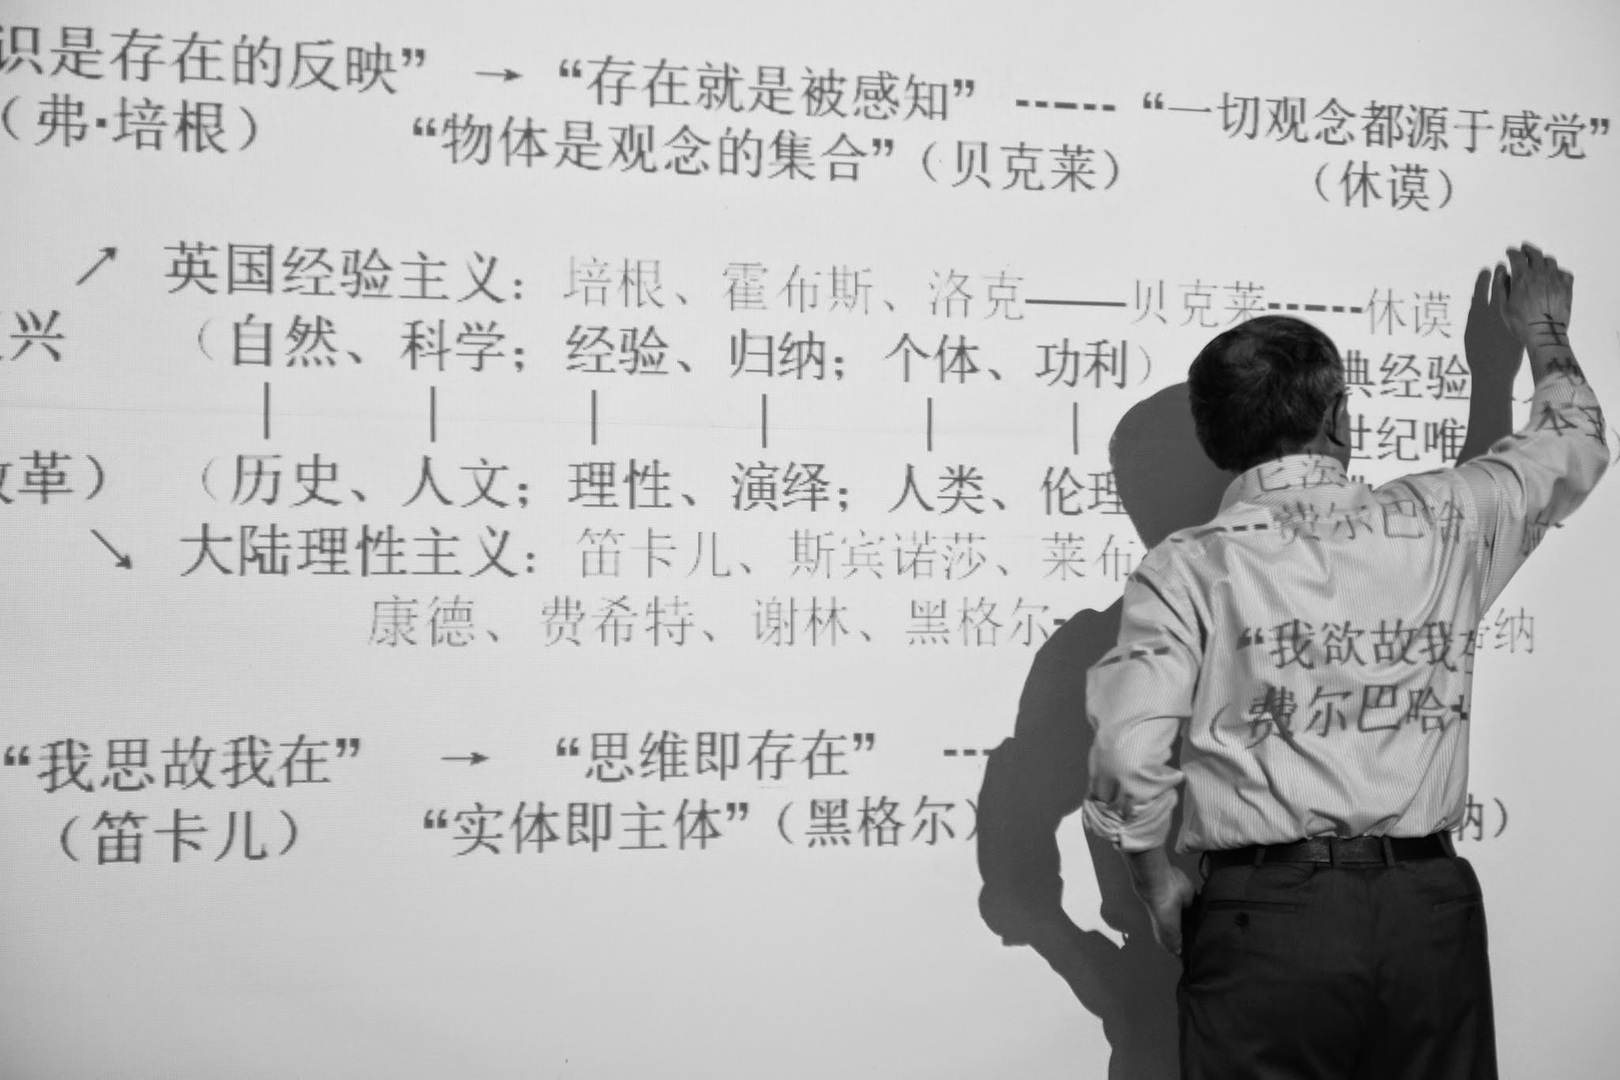 识是存在的反映” → “存在就是被感知” ------ “一切观念都源于感觉”
（弗·培根） “物体是观念的集合”（贝克莱） （休谟）
↗ 英国经验主义：培根、霍布斯、洛克——贝克莱------休谟
兴 （自然、科学；经验、归纳；个体、功利） 典经验
世纪唯
革） （历史、人文；理性、演绎；人类、伦理
---费尔巴哈
↘ 大陆理性主义：笛卡儿、斯宾诺莎、莱布
康德、费希特、谢林、黑格尔- --- “我欲故我在 纳
（费尔巴哈
“我思故我在” → “思维即存在” ---
（笛卡儿） “实体即主体”（黑格尔） 纳）